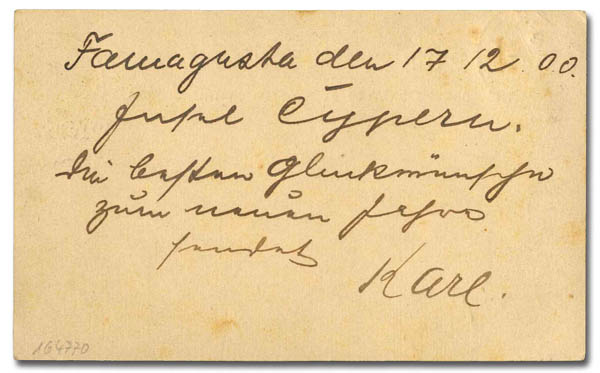 Famagusta den 17 12.00.
Insel Cypern.
Die besten Glückwünsche
zum neuen Jahre
sendet
Karl.
164770